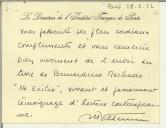 Porto 28.2.22
Le Directeur de l'Institut Français de Porto
vous présente ses plus cordiaux
compliments et vous remercie
bien vivement de l'envoi du
livre de Bernardino Machado:
"No Exilio", vivant et passionnant
témoignage d'histoire contemporaine.